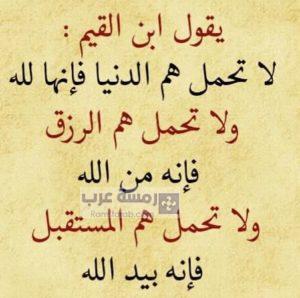 يقول ابن القيم :
لا تحمل هم الدنيا فإنها لله
ولا تحمل هم الرزق
فإنه من الله
رمسة عرب
ولا تحمل هم المستقبل
فإنه بيد الله